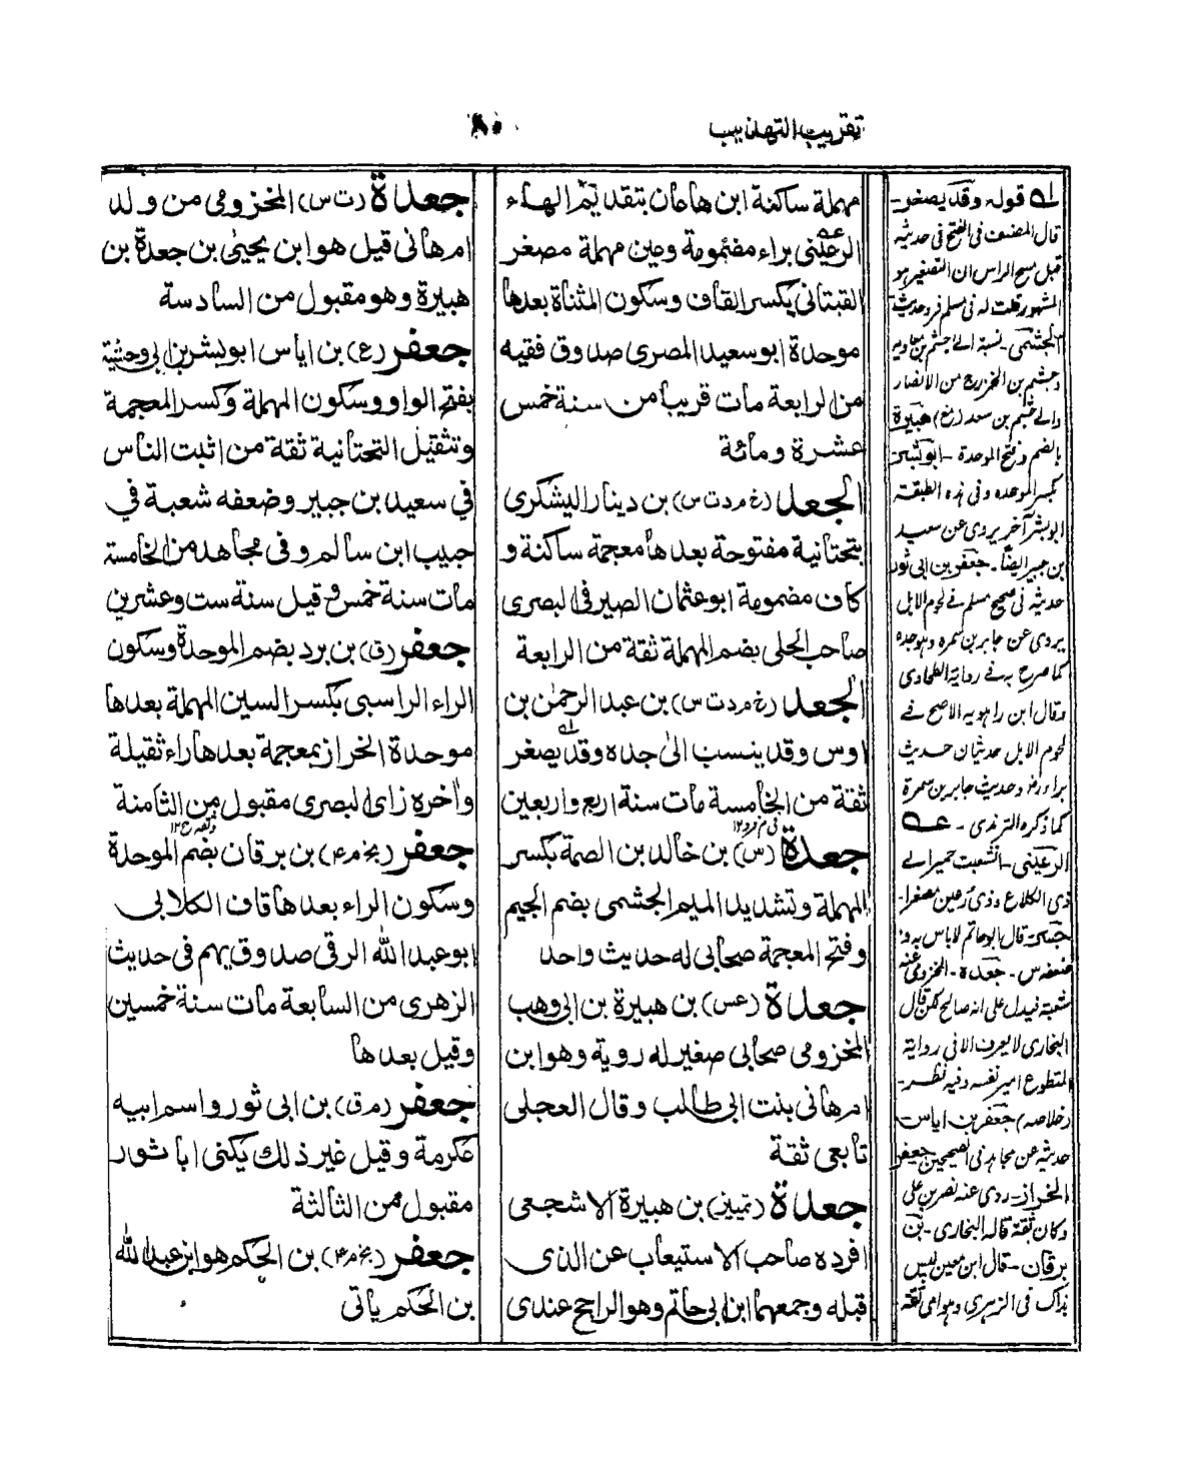 تقريب التهذيب
٨٠
مهملة ساكنة ابن هاعان بتقديم الهاء
الرعيني براء مضمومة وعين مهملة مصغر
القتباني بكسر القاف وسكون المثناة بعدها
موحدة ابو سعيد المصرى صدوق فقيه
من الرابعة مات قريبا من سنة خمس
عشرة ومائة
الجعد (خ م د ت س) بن دينار اليشكرى
بتحتانية مفتوحة بعدها معجمة ساكنة و
كاف مضمومة ابو عثمان الصيرفى البصرى
صاحب الحلى بضم المهملة ثقة من الرابعة
الجعد (خ م د ت س) بن عبد الرحمن بن
اوس وقد ينسب الى جده وقد يصغر
ثقة من الخامسة مات سنة اربع واربعين
جعدة (س) بن خالد بن الصمة بكسر
المهملة وتشديد الميم الجشمى بضم الجيم
وفتح المعجمة صحابى له حديث واحد
جعدة (عس) بن هبيرة بن ابى وهب
المخزومى صحابى صغير له روية وهو ابن
ام هانى بنت ابى طالب وقال العجلى
تابعى ثقة
جعدة (تمييز) بن هبيرة الاشجعى
افرده صاحب الاستيعاب عن الذى
قبله وجمعهما ابن ابى حاتم وهو الراجح عندى
جعدة (ت س) المخزومى من ولد
ام هانى قيل هو ابن يحيى بن جعدة بن
هبيرة وهو مقبول من السادسة
جعفر (ع) بن اياس ابو بشر بن ابى وحشية
بفتح الواو وسكون المهملة وكسر المعجمة
وتثقيل التحتانية ثقة من اثبت الناس
في سعيد بن جبير وضعفه شعبة في
حبيب ابن سالم وفى مجاهد من الخامسة
مات سنة خمس وقيل سنة ست وعشرين
جعفر (ق) بن برد بضم الموحدة وسكون
الراء الراسبى بكسر السين المهملة بعدها
موحدة الخراز بمعجمة بعدها راء ثقيلة
وآخره زاى البصرى مقبول من الثامنة
جعفر (بخ م ٤) بن برقان بضم الموحدة
وسكون الراء بعدها قاف الكلابى
ابو عبد الله الرقى صدوق يهم فى حديث
الزهرى من السابعة مات سنة خمسين
وقيل بعدها
جعفر (م ق) بن ابى ثور واسم ابيه
عكرمة وقيل غير ذلك يكنى ابا ثور
مقبول من الثالثة
جعفر (بخ م ٤) بن الحكم هو ابن عبد الله
بن الحكم ياتى
قوله وقد يصغر-
قال المصنف فى الفتح فى حديثه
قبل مسح الراس ان التصغير هو
المشهور قلت له فى مسلم فرد حديث
الجشمى- نسبة الى جشم بن معاوية
وجشم بن الخزرج من الانصار
هبيرة
بالضم وفتح الموحدة - ابو بشر
بكسر الموحده وفى هذه الطبقة
ابو بشر آخر يروى عن سعيد
بن جبير ايضا- جعفر بن ابى ثور
حديثه فى صحيح مسلم فى لحوم الابل
يروى عن جابر بن سمره وهو جده
كما صرح به فى رواية الطحاوى
وقال ابن راهويه الاصح فى
لحوم الابل حديثان حديث
براء و حديث جابر بن سمرة
كما ذكره الترمذى -
ذى الكلاع وذى رعين مصغرا-
قال ابو حاتم لا باس به
جعدة- المخزومى عنه
شعبة فيدل على انه صالح لكن قال
البخارى لا يعرف الا فى رواية
المتطوع امير نفسه وفيه نظر-
(خلاصه) جعفر بن اياس
حديثه عن مجاهد فى الصحيحين جعفر
الخراز- روى عنه نصر بن على
وكان ثقة قاله البخارى- بن
برقان- قال ابن معين ليس
بذاك فى الزهرى